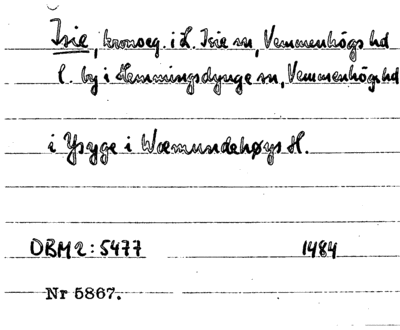 Isie, kronoeg. i L. Isie sn, Vemmenhögs hd
l. by i Hemmingsdynge sn, Vemmenhögs hd
i Ysyge i Wæmundehøys H.
DBM 2:5477 1484
Nr 5867.